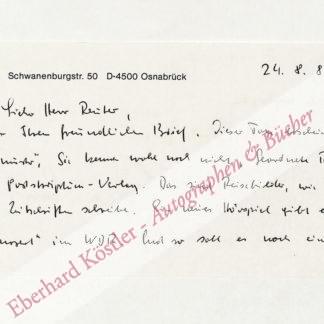 Schwanenburgstr. 50 D-4500 Osnabrück
24. 8. 8
Lieber Herr Reuter,
Ihren freundlichen Brief. Diese
Sie kenne wohl noch nicht,
Postskriptum-Verlag. Das sind Reisebilder, wie
Zeitschriften schreibe. Ein neues Hörspiel gibt e
im WDR. Und so soll es noch ein
Eberhard Köstler - Autographen & Bücher